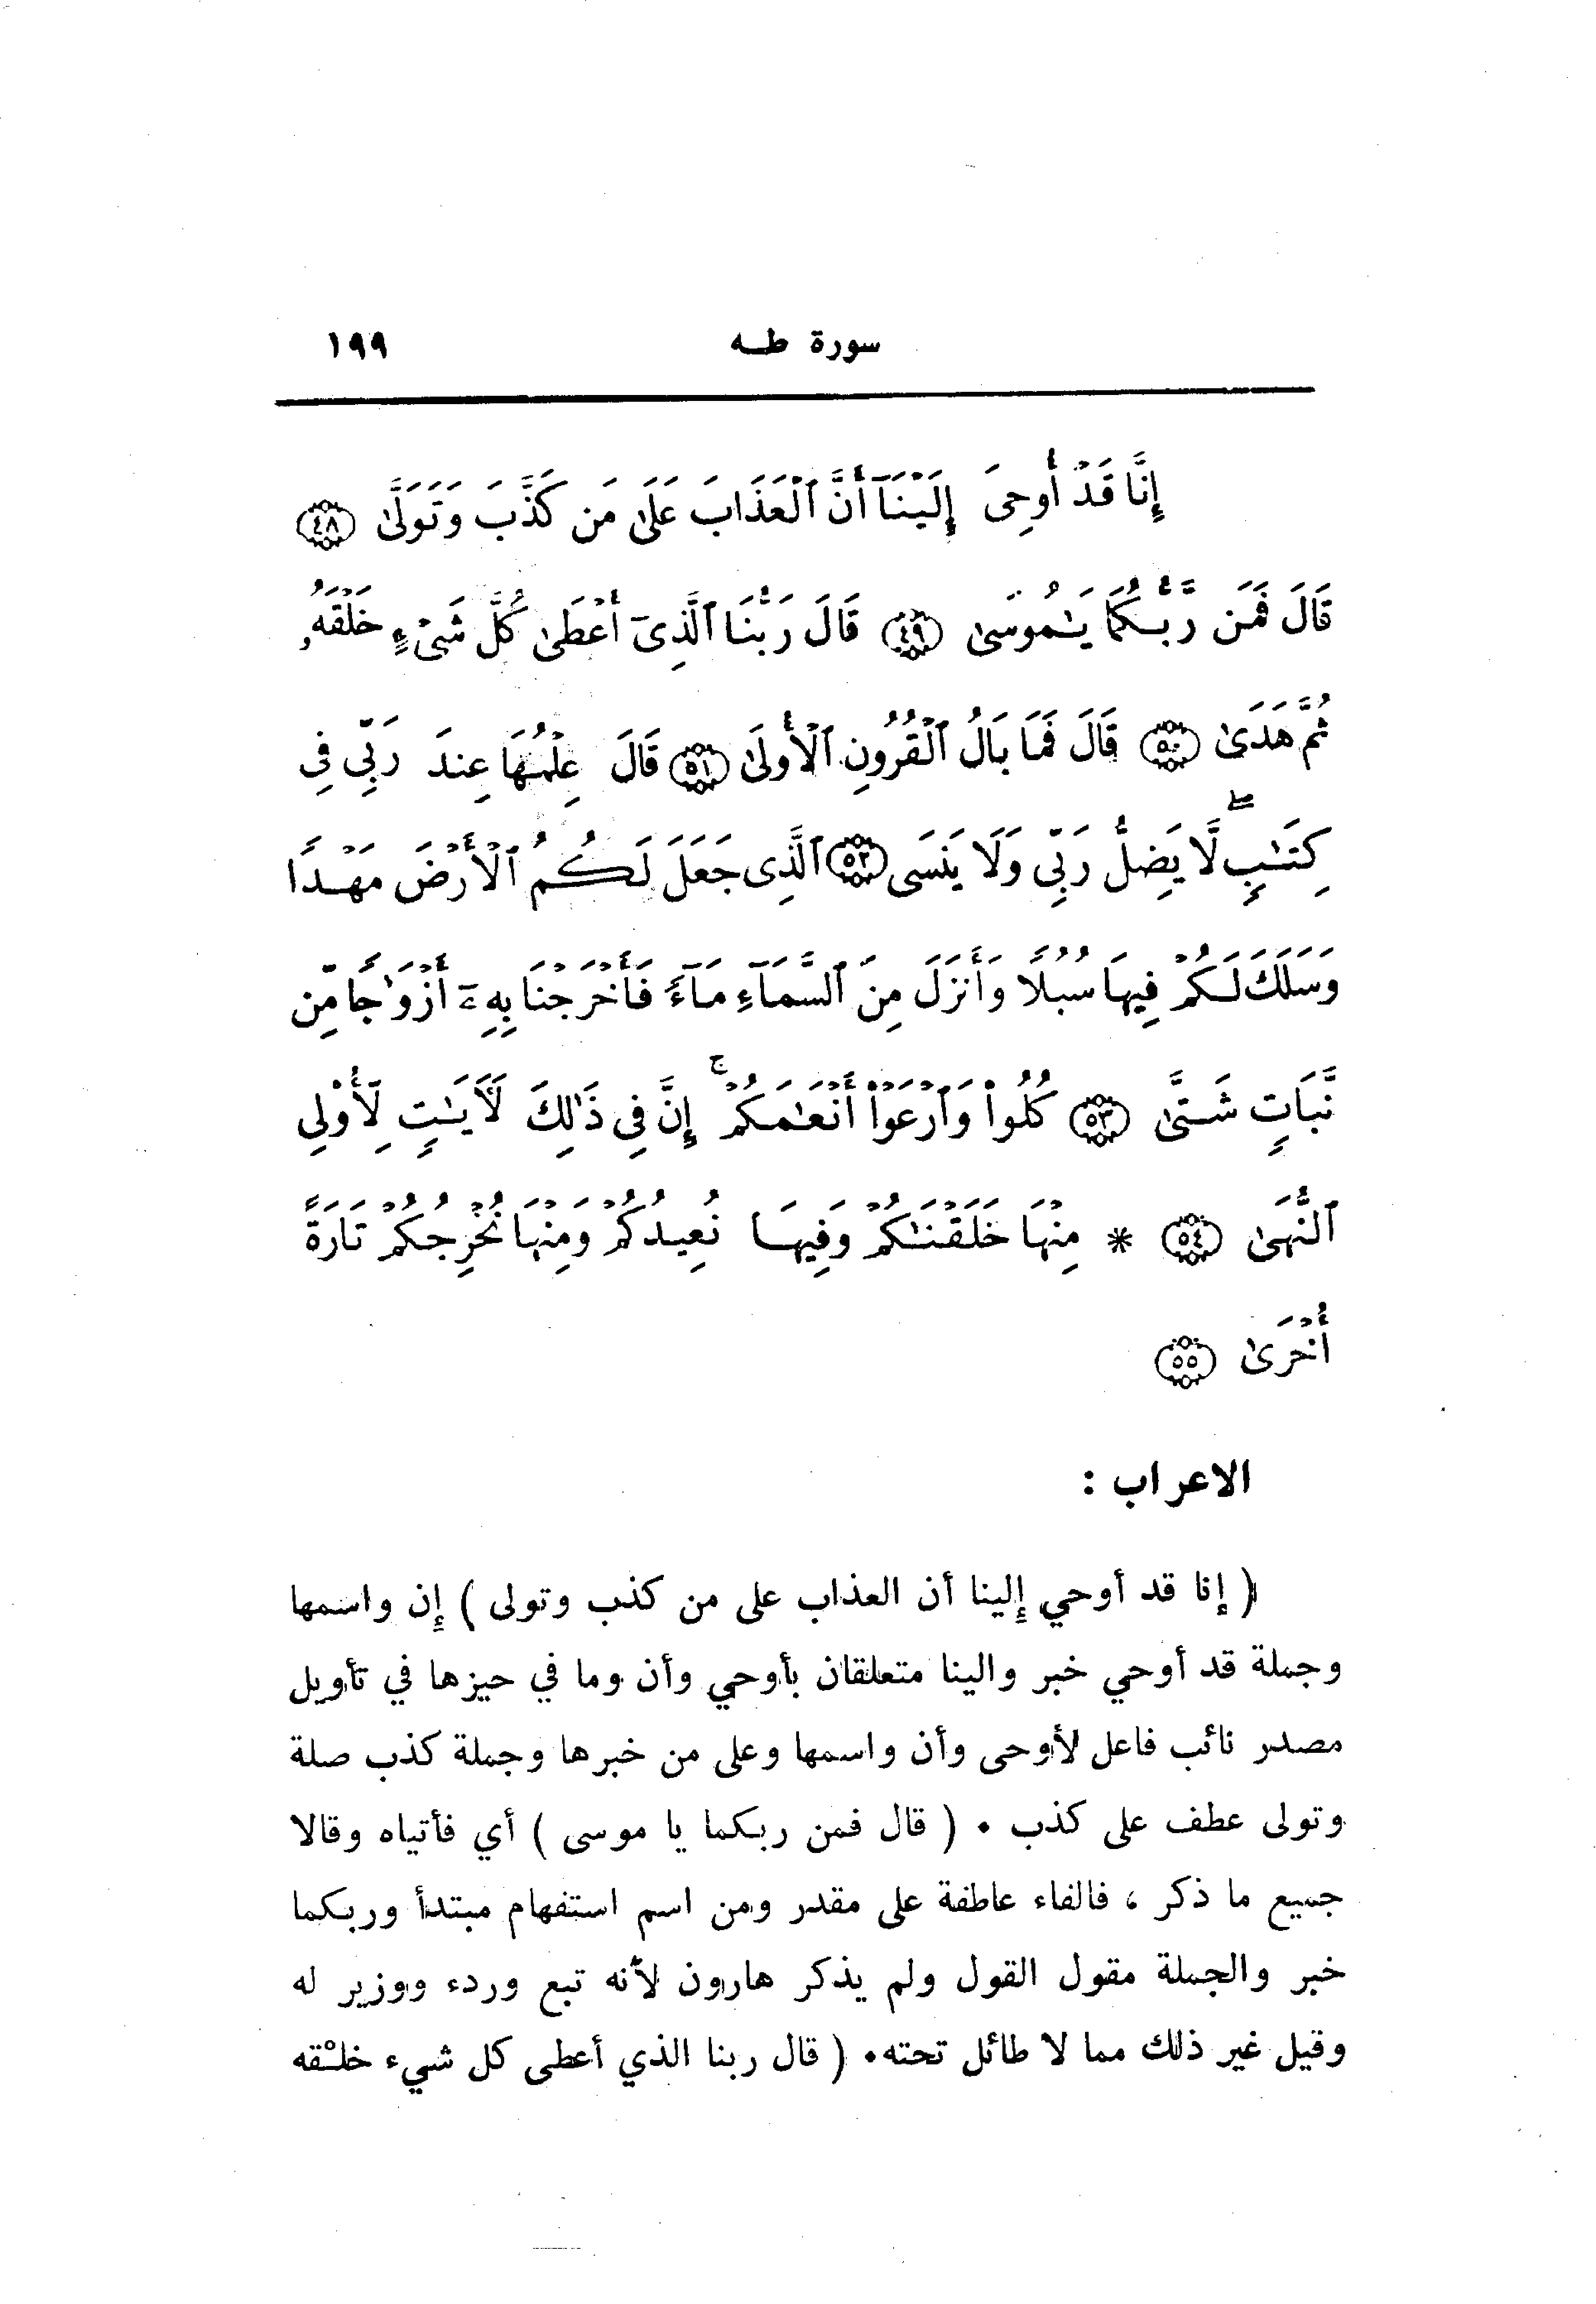 سورة طــه ١٩٩
إِنَّا قَدْ أُوحِىَ إِلَيْنَآ أَنَّ ٱلْعَذَابَ عَلَىٰ مَن كَذَّبَ وَتَوَلَّىٰ ٤٨
قَالَ فَمَن رَّبُّكُمَا يَـٰمُوسَىٰ ٤٩ قَالَ رَبُّنَا ٱلَّذِىٓ أَعْطَىٰ كُلَّ شَىْءٍ خَلْقَهُۥ
ثُمَّ هَدَىٰ ٥٠ قَالَ فَمَا بَالُ ٱلْقُرُونِ ٱلْأُولَىٰ ٥١ قَالَ عِلْمُهَا عِندَ رَبِّى فِى
كِتَـٰبٍ ۖ لَّا يَضِلُّ رَبِّى وَلَا يَنسَى ٥٢ ٱلَّذِى جَعَلَ لَكُمُ ٱلْأَرْضَ مَهْدًا
وَسَلَكَ لَكُمْ فِيهَا سُبُلًا وَأَنزَلَ مِنَ ٱلسَّمَآءِ مَآءً فَأَخْرَجْنَا بِهِۦٓ أَزْوَٰجًا مِّن
نَّبَاتٍ شَتَّىٰ ٥٣ كُلُوا۟ وَٱرْعَوْا۟ أَنْعَـٰمَكُمْ ۚ إِنَّ فِى ذَٰلِكَ لَـَٔايَـٰتٍ لِّأُو۟لِى
ٱلنُّهَىٰ ٥٤ * مِنْهَا خَلَقْنَـٰكُمْ وَفِيهَا نُعِيدُكُمْ وَمِنْهَا نُخْرِجُكُمْ تَارَةً
أُخْرَىٰ ٥٥
الاعراب :
( إنا قد أوحي إلينا أن العذاب على من كذب وتولى ) إن واسمها
وجملة قد أوحي خبر والينا متعلقان بأوحي وأن وما في حيزها في تأويل
مصدر نائب فاعل لأوحى وأن واسمها وعلى من خبرها وجملة كذب صلة
وتولى عطف على كذب . ( قال فمن ربكما يا موسى ) أي فأتياه وقالا
جميع ما ذكر ، فالفاء عاطفة على مقدر ومن اسم استفهام مبتدأ وربكما
خبر والجملة مقول القول ولم يذكر هارون لأنه تبع وردء ووزير له
وقيل غير ذلك مما لا طائل تحته. ( قال ربنا الذي أعطى كل شيء خلْقه